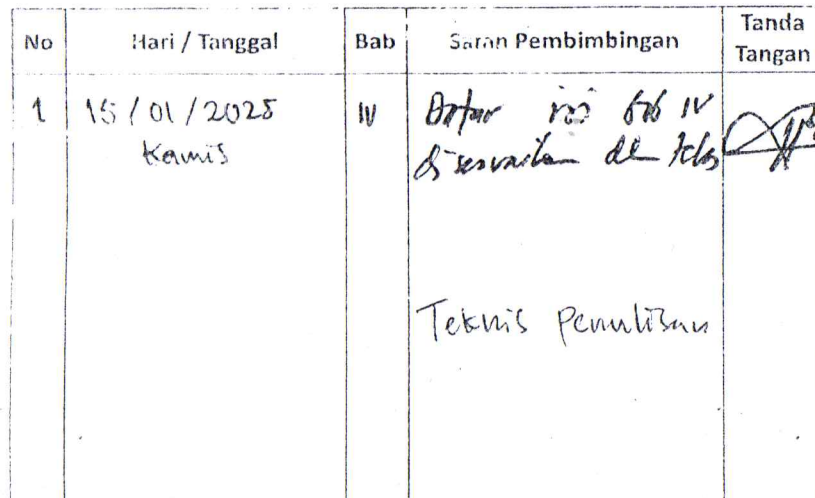 No Hari / Tanggal Bab Saran Pembimbingan Tanda Tangan
1 15 / 01 / 2025 IV Daftar isi bab IV
Kamis disesuaikan
Teknis Penulisan